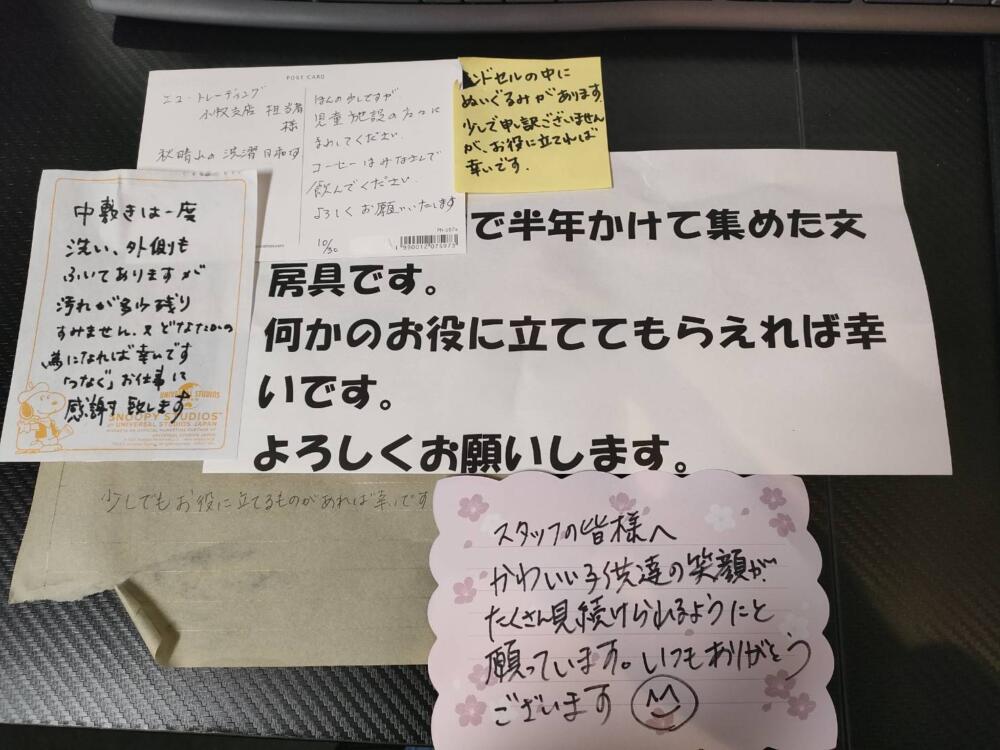 POST CARD
エコ・トレーディング
小牧支店 担当者
様
秋晴れの洗濯日和です
ほんの少しですが
児童施設の方々に
まわしてください
コーヒーはみなさんで
飲んでください
よろしくお願いいたします
10/30
PH-167a
ンドセルの中に
ぬいぐるみがあります
少しで申し訳ございません
が、お役に立てれば
幸いです。
中敷きは一度
洗い、外側も
ふいてありますが
汚れが多少残り
すみません、又どなたかの
為になれば幸いです
「つなぐ」お仕事に
感謝致します
UNIVERSAL STUDIOS
SNOOPY STUDIOS
UNIVERSAL STUDIOS JAPAN
で半年かけて集めた文
房具です。
何かのお役に立ててもらえれば幸
いです。
よろしくお願いします。
少しでもお役に立てるものがあれば幸いです
スタッフの皆様へ
かわいい子供達の笑顔が
たくさん見続けられるようにと
願っています。いつもありがとう
ございます